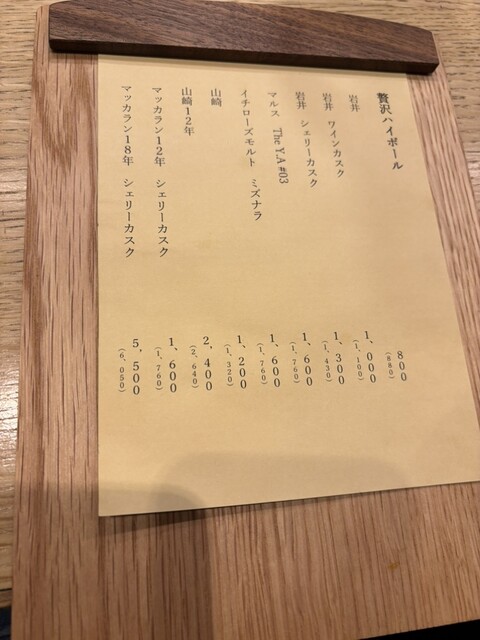 贅沢ハイボール
岩井 800
(880)
岩井 ワインカスク 1,000
(1,100)
岩井 シェリーカスク 1,300
(1,430)
マルス The Y.A #03 1,600
(1,760)
イチローズモルト ミズナラ 1,600
(1,760)
山崎 1,200
(1,320)
山崎12年 2,400
(2,640)
マッカラン12年 シェリーカスク 1,600
(1,760)
マッカラン18年 シェリーカスク 5,500
(6,050)